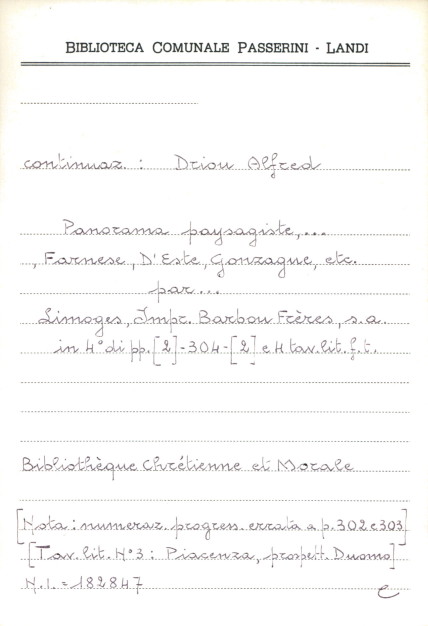 BIBLIOTECA COMUNALE PASSERINI - LANDI
continuaz. : Driou Alfred
Panorama paysagiste,...
, Farnese, D'Este, Gonzague, etc.
par...
Limoges, Impr. Barbou Frères, s.a.
in 4° di pp. [2]-304-[2] e 4 tav. lit. f.t.
Bibliothèque Chrétienne et Morale
[Nota: numeraz. progress. errata a p. 302 e 303]
[Tav. lit. N°3: Piacenza, prospett. Duomo]
N.I. = 182847